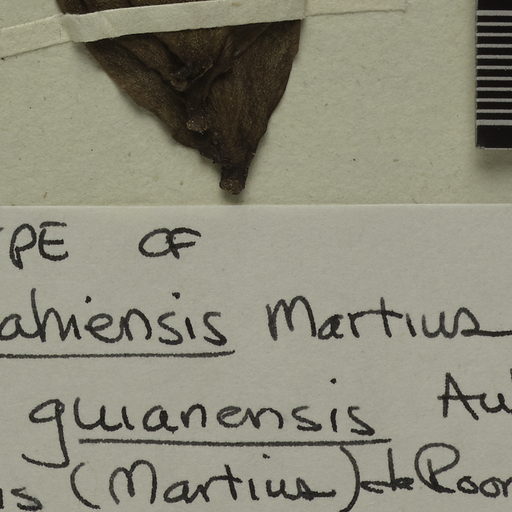 YPE OF
ahiensis Martius
guianensis Au
is (Martius) de Roon